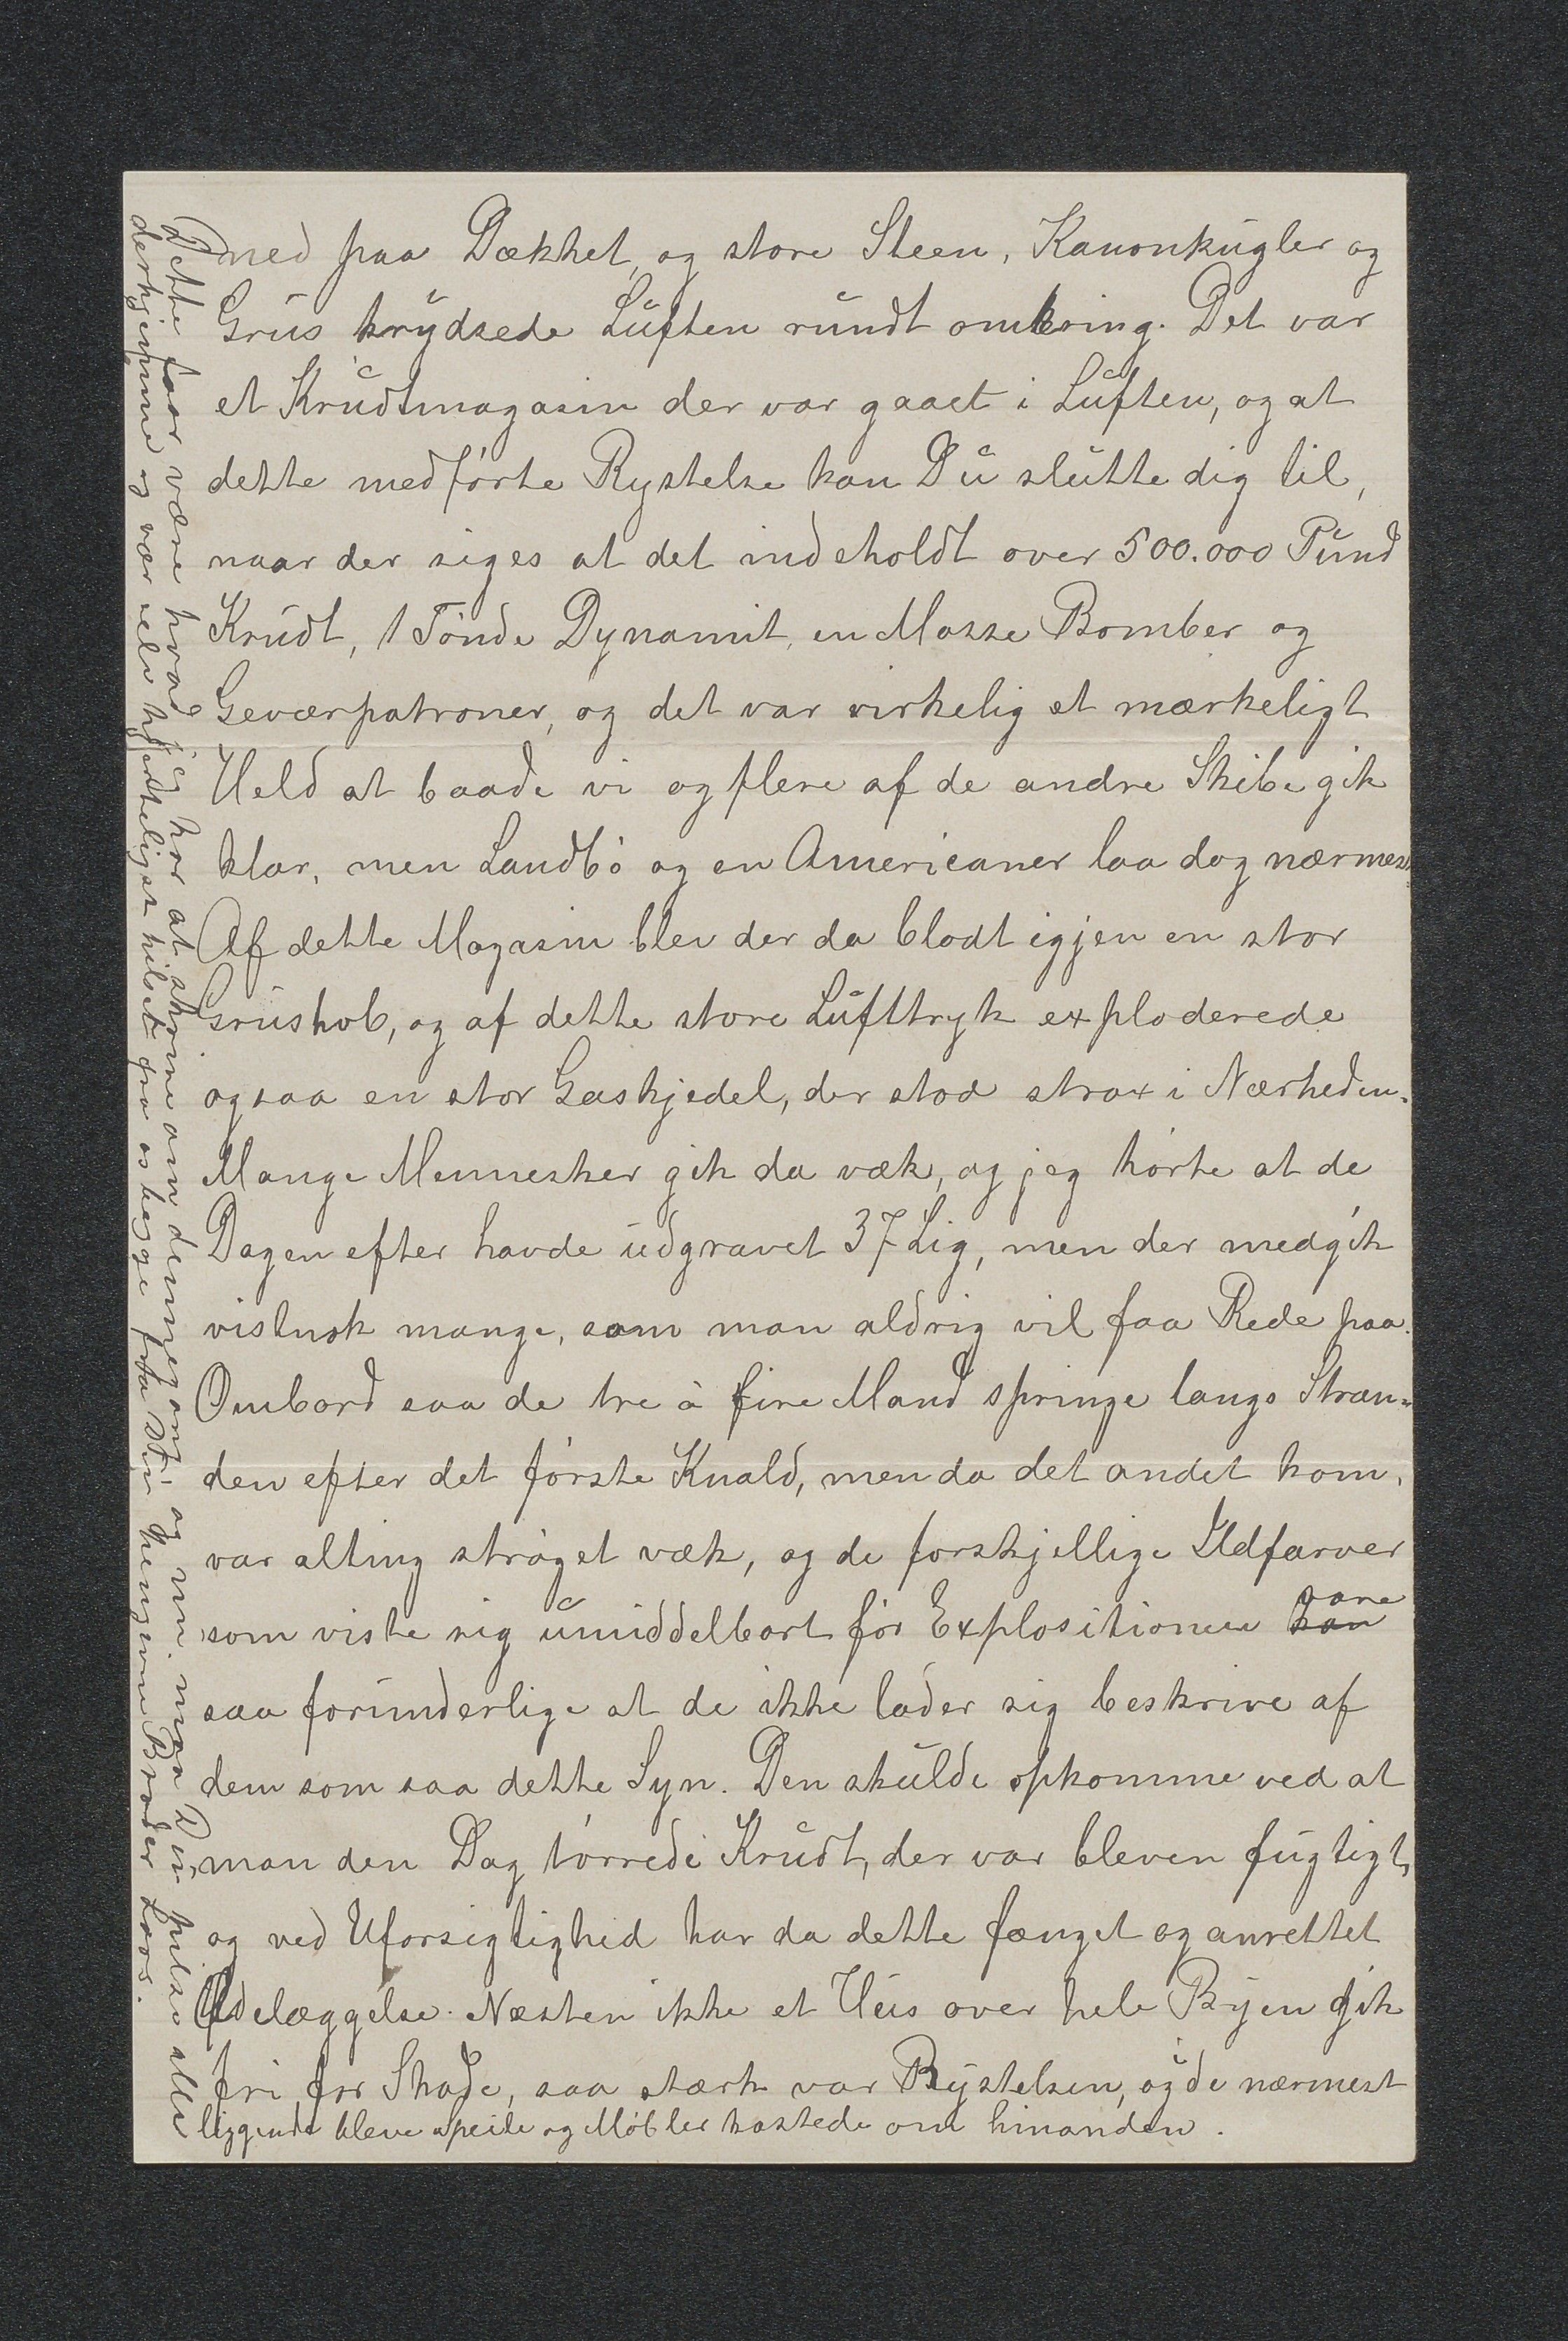 ned paa Dækket, og store Steen, Kanonkugler og
Grus krydsede Luften rundt omkring. Det var
et Krudtmagasin der var gaaet i Luften, og at
dette medførte Rystelse kan Du slutte dig til,
naar der siges at det indeholdt over 500.000 Pund
Krudt, 1 Tønde Dynamit, en Masse Bomber og
Geværpatroner, og det var virkelig et mærkeligt
Held at baade vi og flere af de andre Skibe gik
klar, men Landbø og en Americaner laa dog nærmest.
Af dette Magasin blev der da blodt igjen en stor
Grushob, og af dette store Lufttryk exploderede
ogsaa en stor Gaskjedel, der stod strax i Nærheden.
Mange Mennesker gik da væk, og jeg hørte at de
Dagen efter havde udgravet 37 Lig, men der medgik
vistnok mange, som man aldrig vil faa Rede paa.
Ombord saa de tre à fire Mand springe langs Stran-
den efter det første Knald, men da det andet kom,
var alting strøget væk, og de forskjellige Ildfarver
som viste sig umiddelbart før Explositionen vare
saa forunderlige at de ikke lader sig beskrive af
dem som saa dette Syn. Den skulde opkomme ved at
man den Dag tørrede Krudt, der var bleven fugtigt,
og ved Uforsigtighed har da dette fænget og anrettet
Ødelæggelse. Næsten ikke et Hus over hele Byen gik
fri for Skade, saa stærk var Rystelsen, og i de nærmest
liggende bleve Speile og Møbler kastede om hinanden.
Dette faar være hvad jeg har at skrive om denne gang og nu maa Du hilse alle
derhjemme og vær selv hjerteligst hilset fra os begge fra Din hengivne Broder Lars.